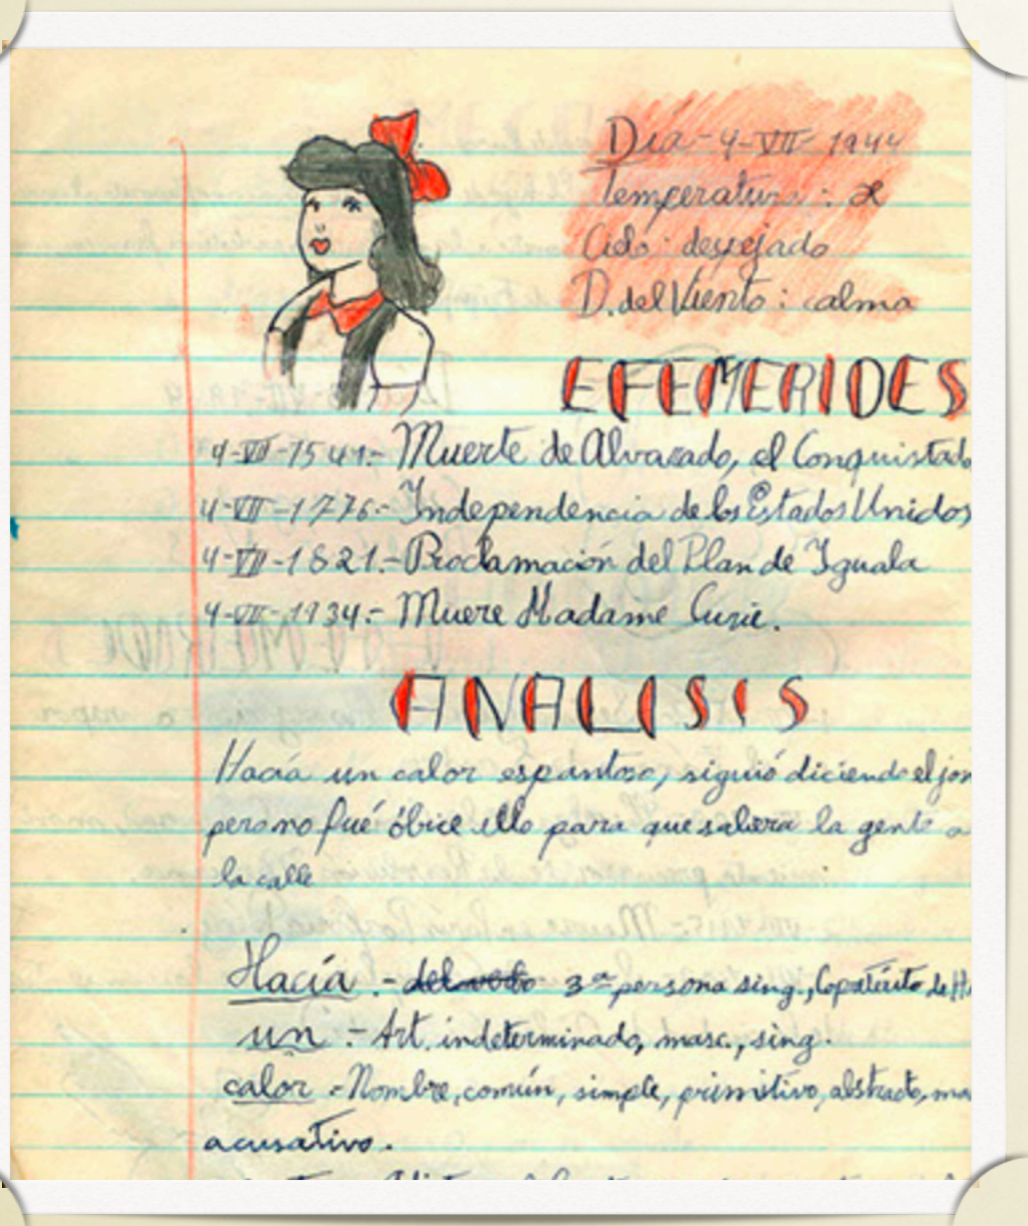 Día-4-VII-1944
Temperatura:
Cielo: despejado
D. del Viento: calma
EFEMERIDES
4-VII-1541.- Muerte de Alvarado, el Conquistad
4-VII-1776.- Independencia de los Estados Unidos
4-VII-1821.- Proclamación del Plan de Iguala
4-VII-1934.- Muere Madame Curie.
ANALISIS
Hacía un calor espantoso, siguió diciendo el jor
pero no fué óbice ello para que saliera la gente a
la calle
Hacía.- 3ª persona sing., Copretérito de H
un.- Art. indeterminado, masc., sing.
calor =Nombre, común, simple, primitivo, abstracto, ma
acusativo.